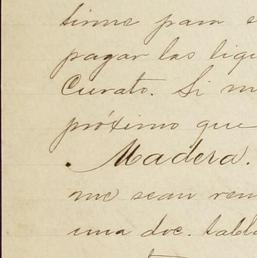 tirme para
pagar las liqu
Curato. Si m
próximo que
. Madera.
me sean rem
una doc. tabl